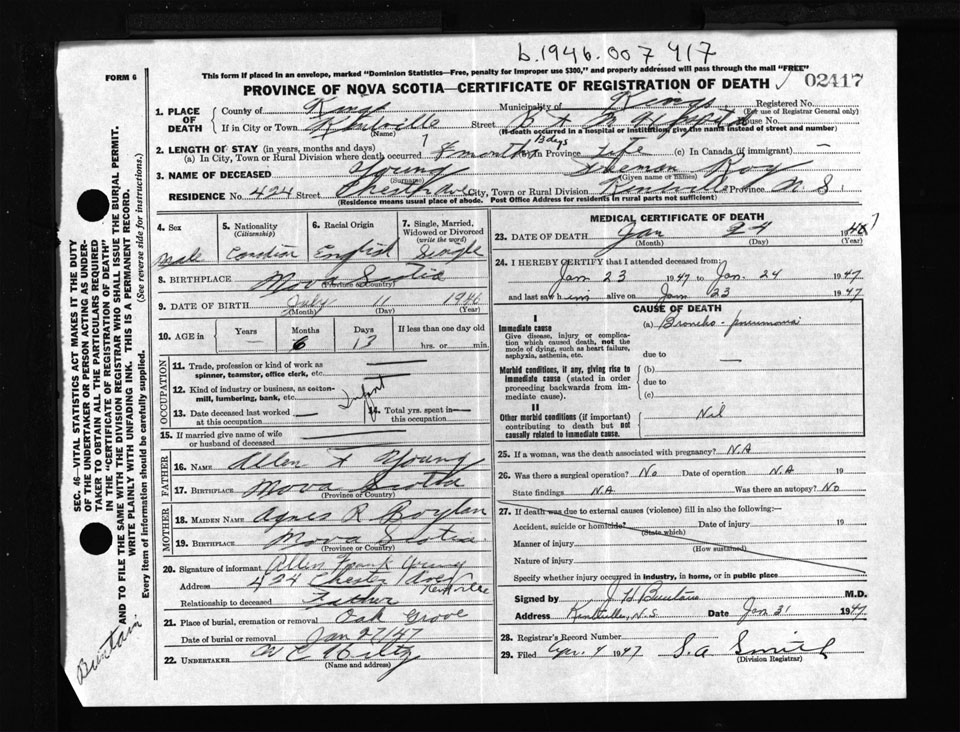 b.1946.007417
FORM 6
This form if placed in an envelope, marked "Dominion Statistics—Free, penalty for improper use $300," and properly addressed will pass through the mail "FREE"
PROVINCE OF NOVA SCOTIA—CERTIFICATE OF REGISTRATION OF DEATH
02417
1. PLACE OF DEATH
County of Kings Municipality of Kings Registered No.
(For use of Registrar General only)
If in City or Town Kentville Street B + M Hospital House No.
(Name) (If death occurred in a hospital or institution, give the name instead of street and number)
2. LENGTH OF STAY (in years, months and days)
(a) In City, Town or Rural Division where death occurred 6 months 13 days in Province Life (c) In Canada (if immigrant) —
3. NAME OF DECEASED Young Freeman Roy
(Surname) (Given name or names)
RESIDENCE No. 424 Street Chester Ave City, Town or Rural Division Kentville Province N S
(Residence means usual place of abode. Post Office Address for residents in rural parts not sufficient)
4. Sex
Male
5. Nationality
(Citizenship)
Canadian
6. Racial Origin
English
7. Single, Married, Widowed or Divorced
(write the word)
Single
8. BIRTHPLACE Nova Scotia
(Province or Country)
9. DATE OF BIRTH July 11 1946
(Month) (Day) (Year)
10. AGE in
Years Months Days If less than one day old
— 6 13 hrs. or min.
OCCUPATION
11. Trade, profession or kind of work as
spinner, teamster, office clerk, etc.
12. Kind of industry or business, as cotton-
mill, lumbering, bank, etc.
Infant
13. Date deceased last worked at this occupation
14. Total yrs. spent in this occupation
15. If married give name of wife
or husband of deceased
FATHER
16. NAME Allen F Young
17. BIRTHPLACE Nova Scotia
(Province or Country)
MOTHER
18. MAIDEN NAME Agnes R Boylan
19. BIRTHPLACE Nova Scotia
(Province or Country)
20. Signature of informant Allen Frank Young
Address 424 Chester Ave Kentville
Relationship to deceased Father
21. Place of burial, cremation or removal Oak Grove
Date of burial or removal Jan 27/47
22. UNDERTAKER W C Hiltz
(Name and address)
MEDICAL CERTIFICATE OF DEATH
23. DATE OF DEATH Jan 24 1947
(Month) (Day) (Year)
24. I HEREBY CERTIFY that I attended deceased from:
Jan 23 1947 to Jan. 24 1947
and last saw him alive on Jan 23 1947
CAUSE OF DEATH
I
Immediate cause
Give disease, injury or complication which caused death, not the mode of dying, such as heart failure, asphyxia, asthenia, etc.
(a) Broncho-pneumonia
due to —
Morbid conditions, if any, giving rise to immediate cause (stated in order proceeding backwards from immediate cause).
(b)
due to
(c)
II
Other morbid conditions (if important) contributing to death but not causally related to immediate cause.
Nil
25. If a woman, was the death associated with pregnancy? N.A
26. Was there a surgical operation? No Date of operation N.A 19
State findings N.A Was there an autopsy? No
27. If death was due to external causes (violence) fill in also the following:—
Accident, suicide or homicide? Date of injury 19
(State which)
Manner of injury
(How sustained)
Nature of injury
Specify whether injury occurred in industry, in home, or in public place
Signed by J H Buntain M.D.
Address Kentville, N.S. Date Jan 31 1947
28. Registrar's Record Number
29. Filed Apr. 4 1947 S. A Smith
(Division Registrar)
SEC. 46—VITAL STATISTICS ACT MAKES IT THE DUTY
OF THE UNDERTAKER OR PERSON ACTING AS UNDER-
TAKER TO OBTAIN ALL THE PARTICULARS REQUIRED
IN THE "CERTIFICATE OF REGISTRATION OF DEATH"
AND TO FILE THE SAME WITH THE DIVISION REGISTRAR WHO SHALL ISSUE THE BURIAL PERMIT.
WRITE PLAINLY WITH UNFADING INK. THIS IS A PERMANENT RECORD.
Every item of information should be carefully supplied. (See reverse side for instructions.)
Buntain